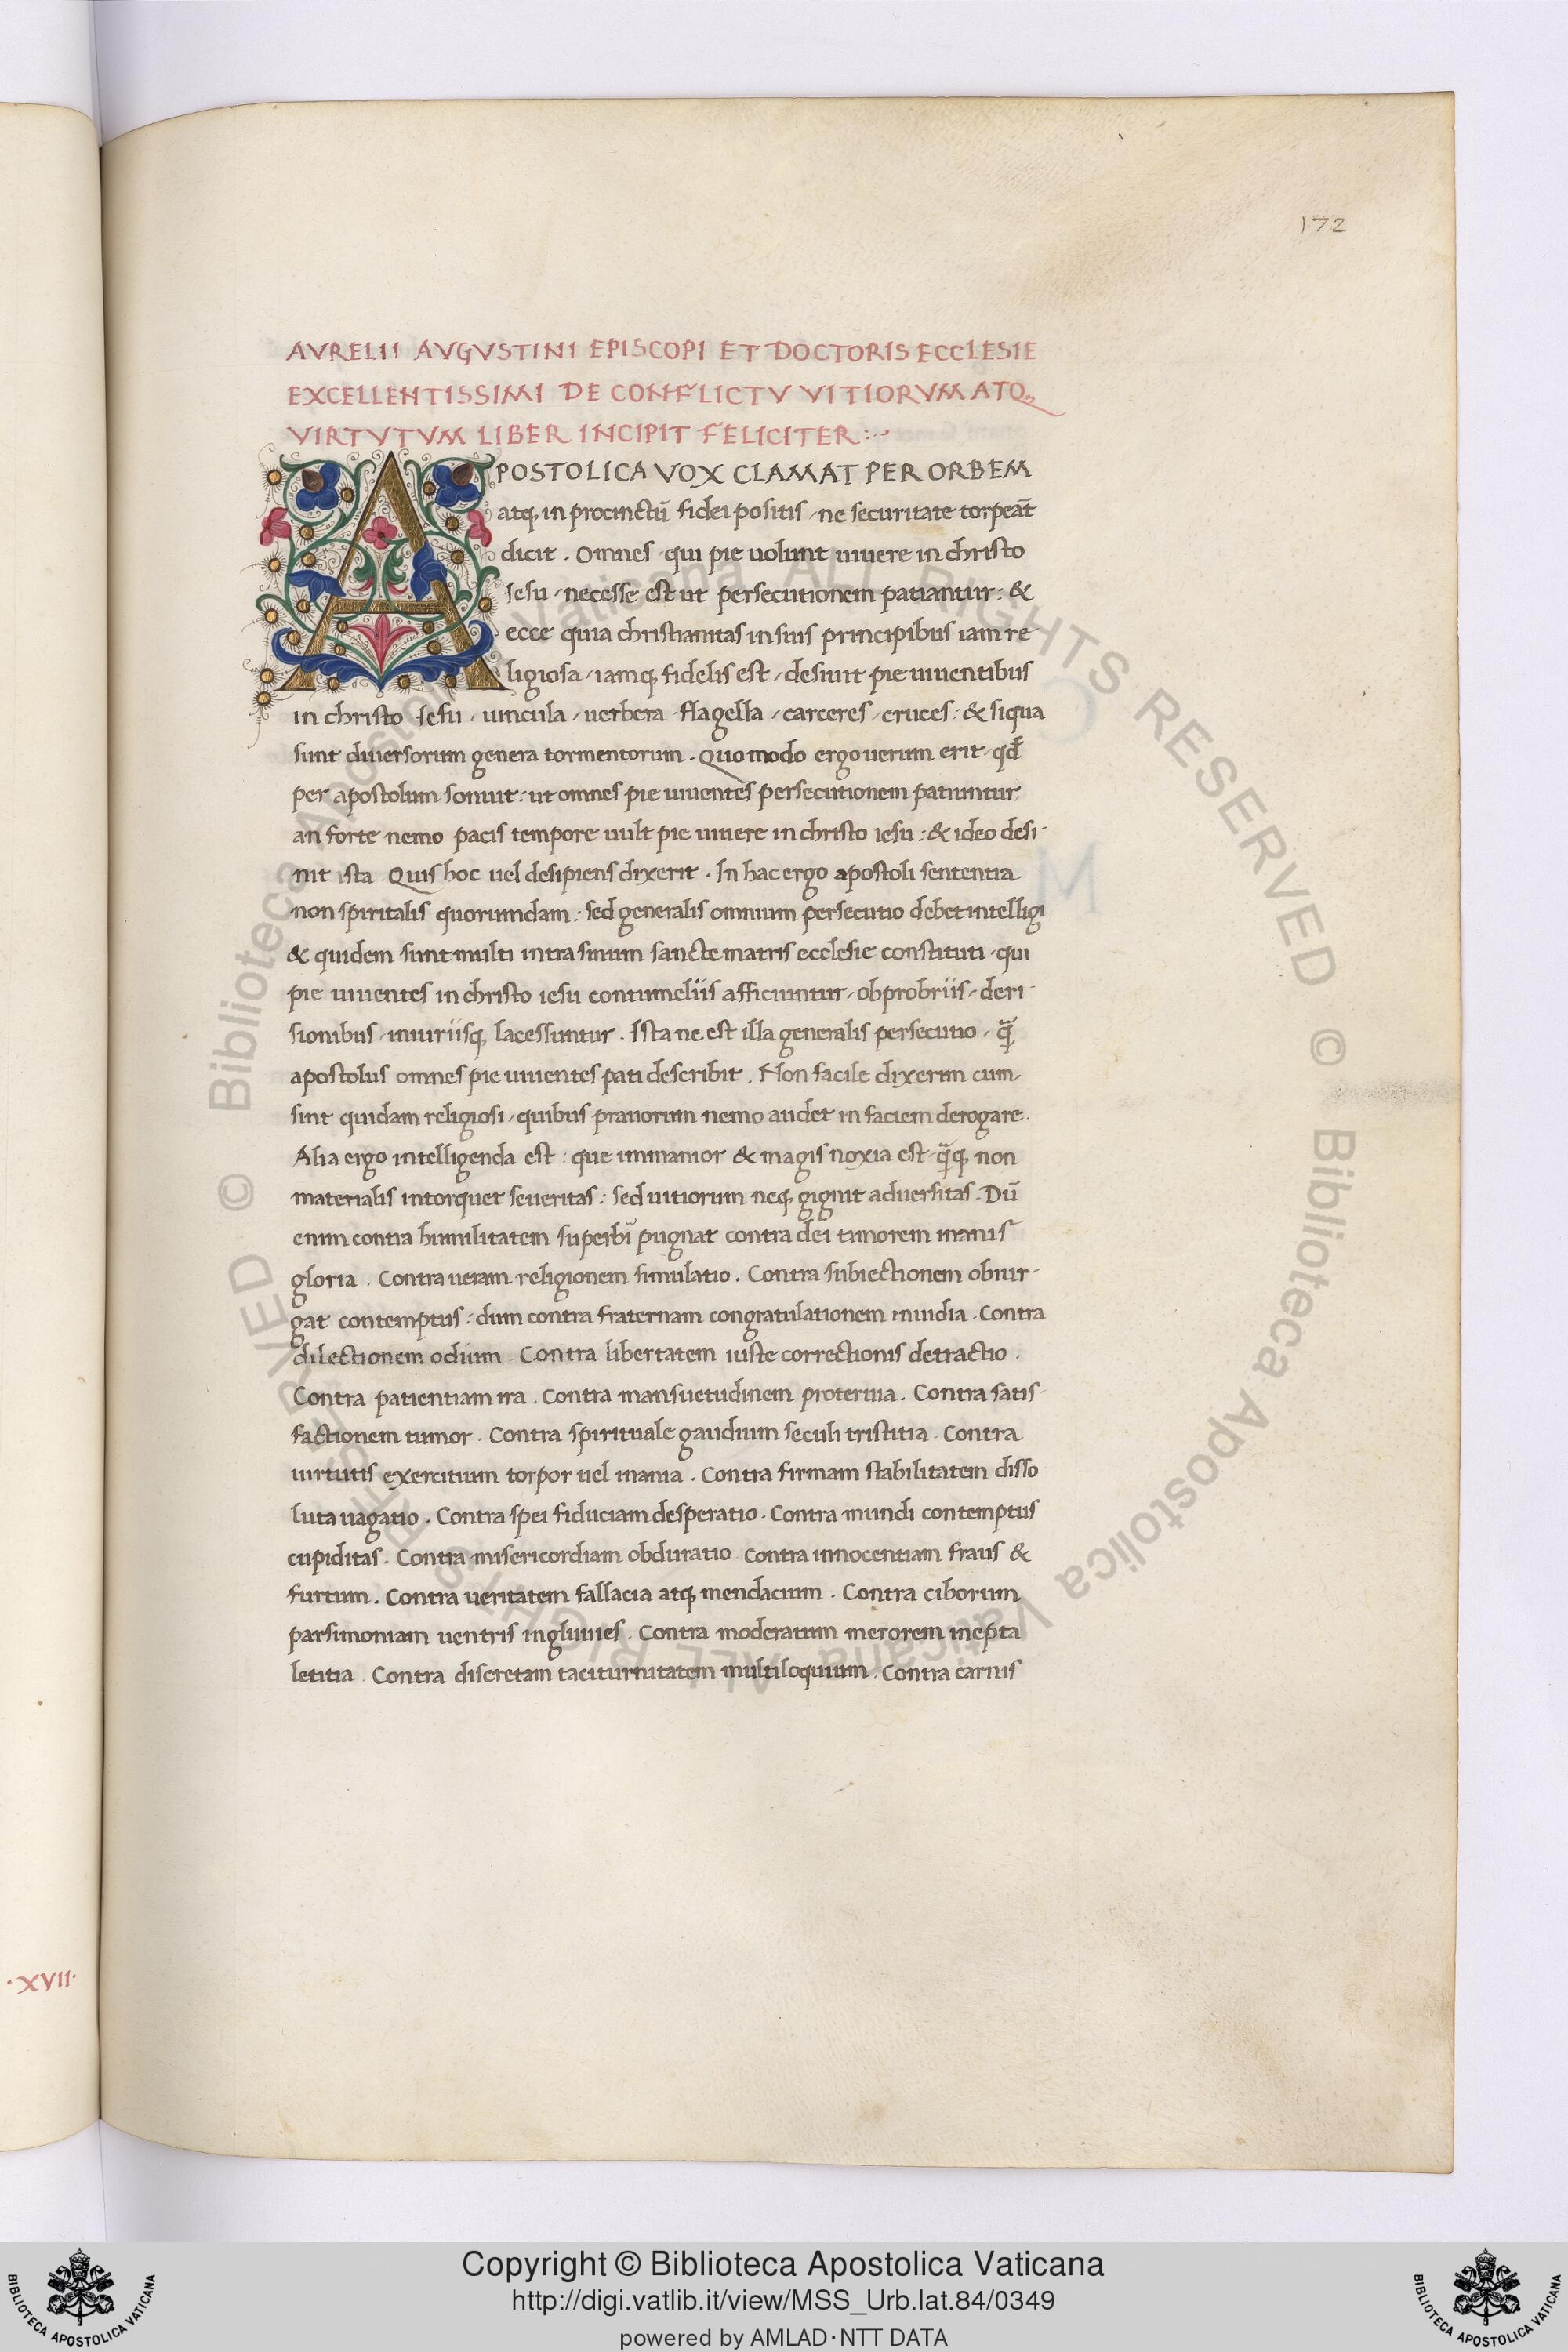 172
AVRELII AVGVSTINI EPISCOPI ET DOCTORIS ECCLESIE
EXCELLENTISSIMI DE CONFLICTV VITIORVM ATQ;
VIRTVTVM LIBER INCIPIT FELICITER :~
APOSTOLICA VOX CLAMAT PER ORBEM
atq; in procinctū fidei positis / ne securitate torpeāt
dicit . Omnes / qui pie uolunt uiuere in christo
Iesu / necesse est ut persecutionem patiantur : &
ecce quia christianitas in suis principibus iam re
ligiosa / iamq; fidelis est / desunt pie uiuentibus
in christo Iesu / uincula / uerbera / flagella / carceres / cruces : & siqua
sunt diuersorum genera tormentorum . Quomodo ergo uerum erit / qđ
per apostolum sonuit : ut omnes pie uiuentes persecutionem patiuntur
an forte nemo pacis tempore uult pie uiuere in christo iesu : & ideo desi-
nit ista Quis hoc uel desipiens dixerit . In hac ergo apostoli sententia
non spiritalis quorundam : sed generalis omnium persecutio debet intelligi
& quidem sunt multi intra sinum sancte matris ecclesie constituti / qui
pie uiuentes in christo iesu contumeliis afficiuntur / obprobriis / deri-
sionibus / iniuriisq; lacessuntur . Ista ne est illa generalis persecutio / quā
apostolus omnes pie uiuentes pati describit . Non facile dixerim cum
sint quidam religiosi / quibus prauorum nemo audet in faciem derogare .
Alia ergo intelligenda est : que immanior & magis noxia est / quāq; non
materialis intorquet seueritas : sed uitiorum neq; gignit aduersitas . Dū
enim contra humilitatem superbī pugnat contra dei timorem inanis
gloria . Contra ueram religionem simulatio . Contra subiectionem obiur-
gat contemptus : dum contra fraternam congratulationem inuidia . Contra
dilectionem odium . Contra libertatem iuste correctionis detractio .
Contra patientiam ira . Contra mansuetudinem proteruia . Contra satis-
factionem tumor . Contra spirituale gaudium seculi tristitia . Contra
uirtutis exercitium torpor uel inania . Contra firmam stabilitatem disso
luta uagatio . Contra spei fiduciam desperatio . Contra mundi contemptus
cupiditas . Contra misericordiam obduratio Contra innocentiam fraus &
furtum . Contra ueritatem fallacia atq; mendacium . Contra ciborum
parsimoniam uentris ingluuies . Contra moderatum merorem inepta
letitia . Contra discretam taciturnitatem multiloquium . Contra carnis
·XVII·
© Biblioteca Apostolica Vaticana ALL RIGHTS RESERVED © Biblioteca Apostolica Vaticana ALL RIGHTS RESERVED
Copyright © Biblioteca Apostolica Vaticana
http://digi.vatlib.it/view/MSS_Urb.lat.84/0349
powered by AMLAD·NTT DATA
BIBLIOTECA APOSTOLICA VATICANA
BIBLIOTECA APOSTOLICA VATICANA